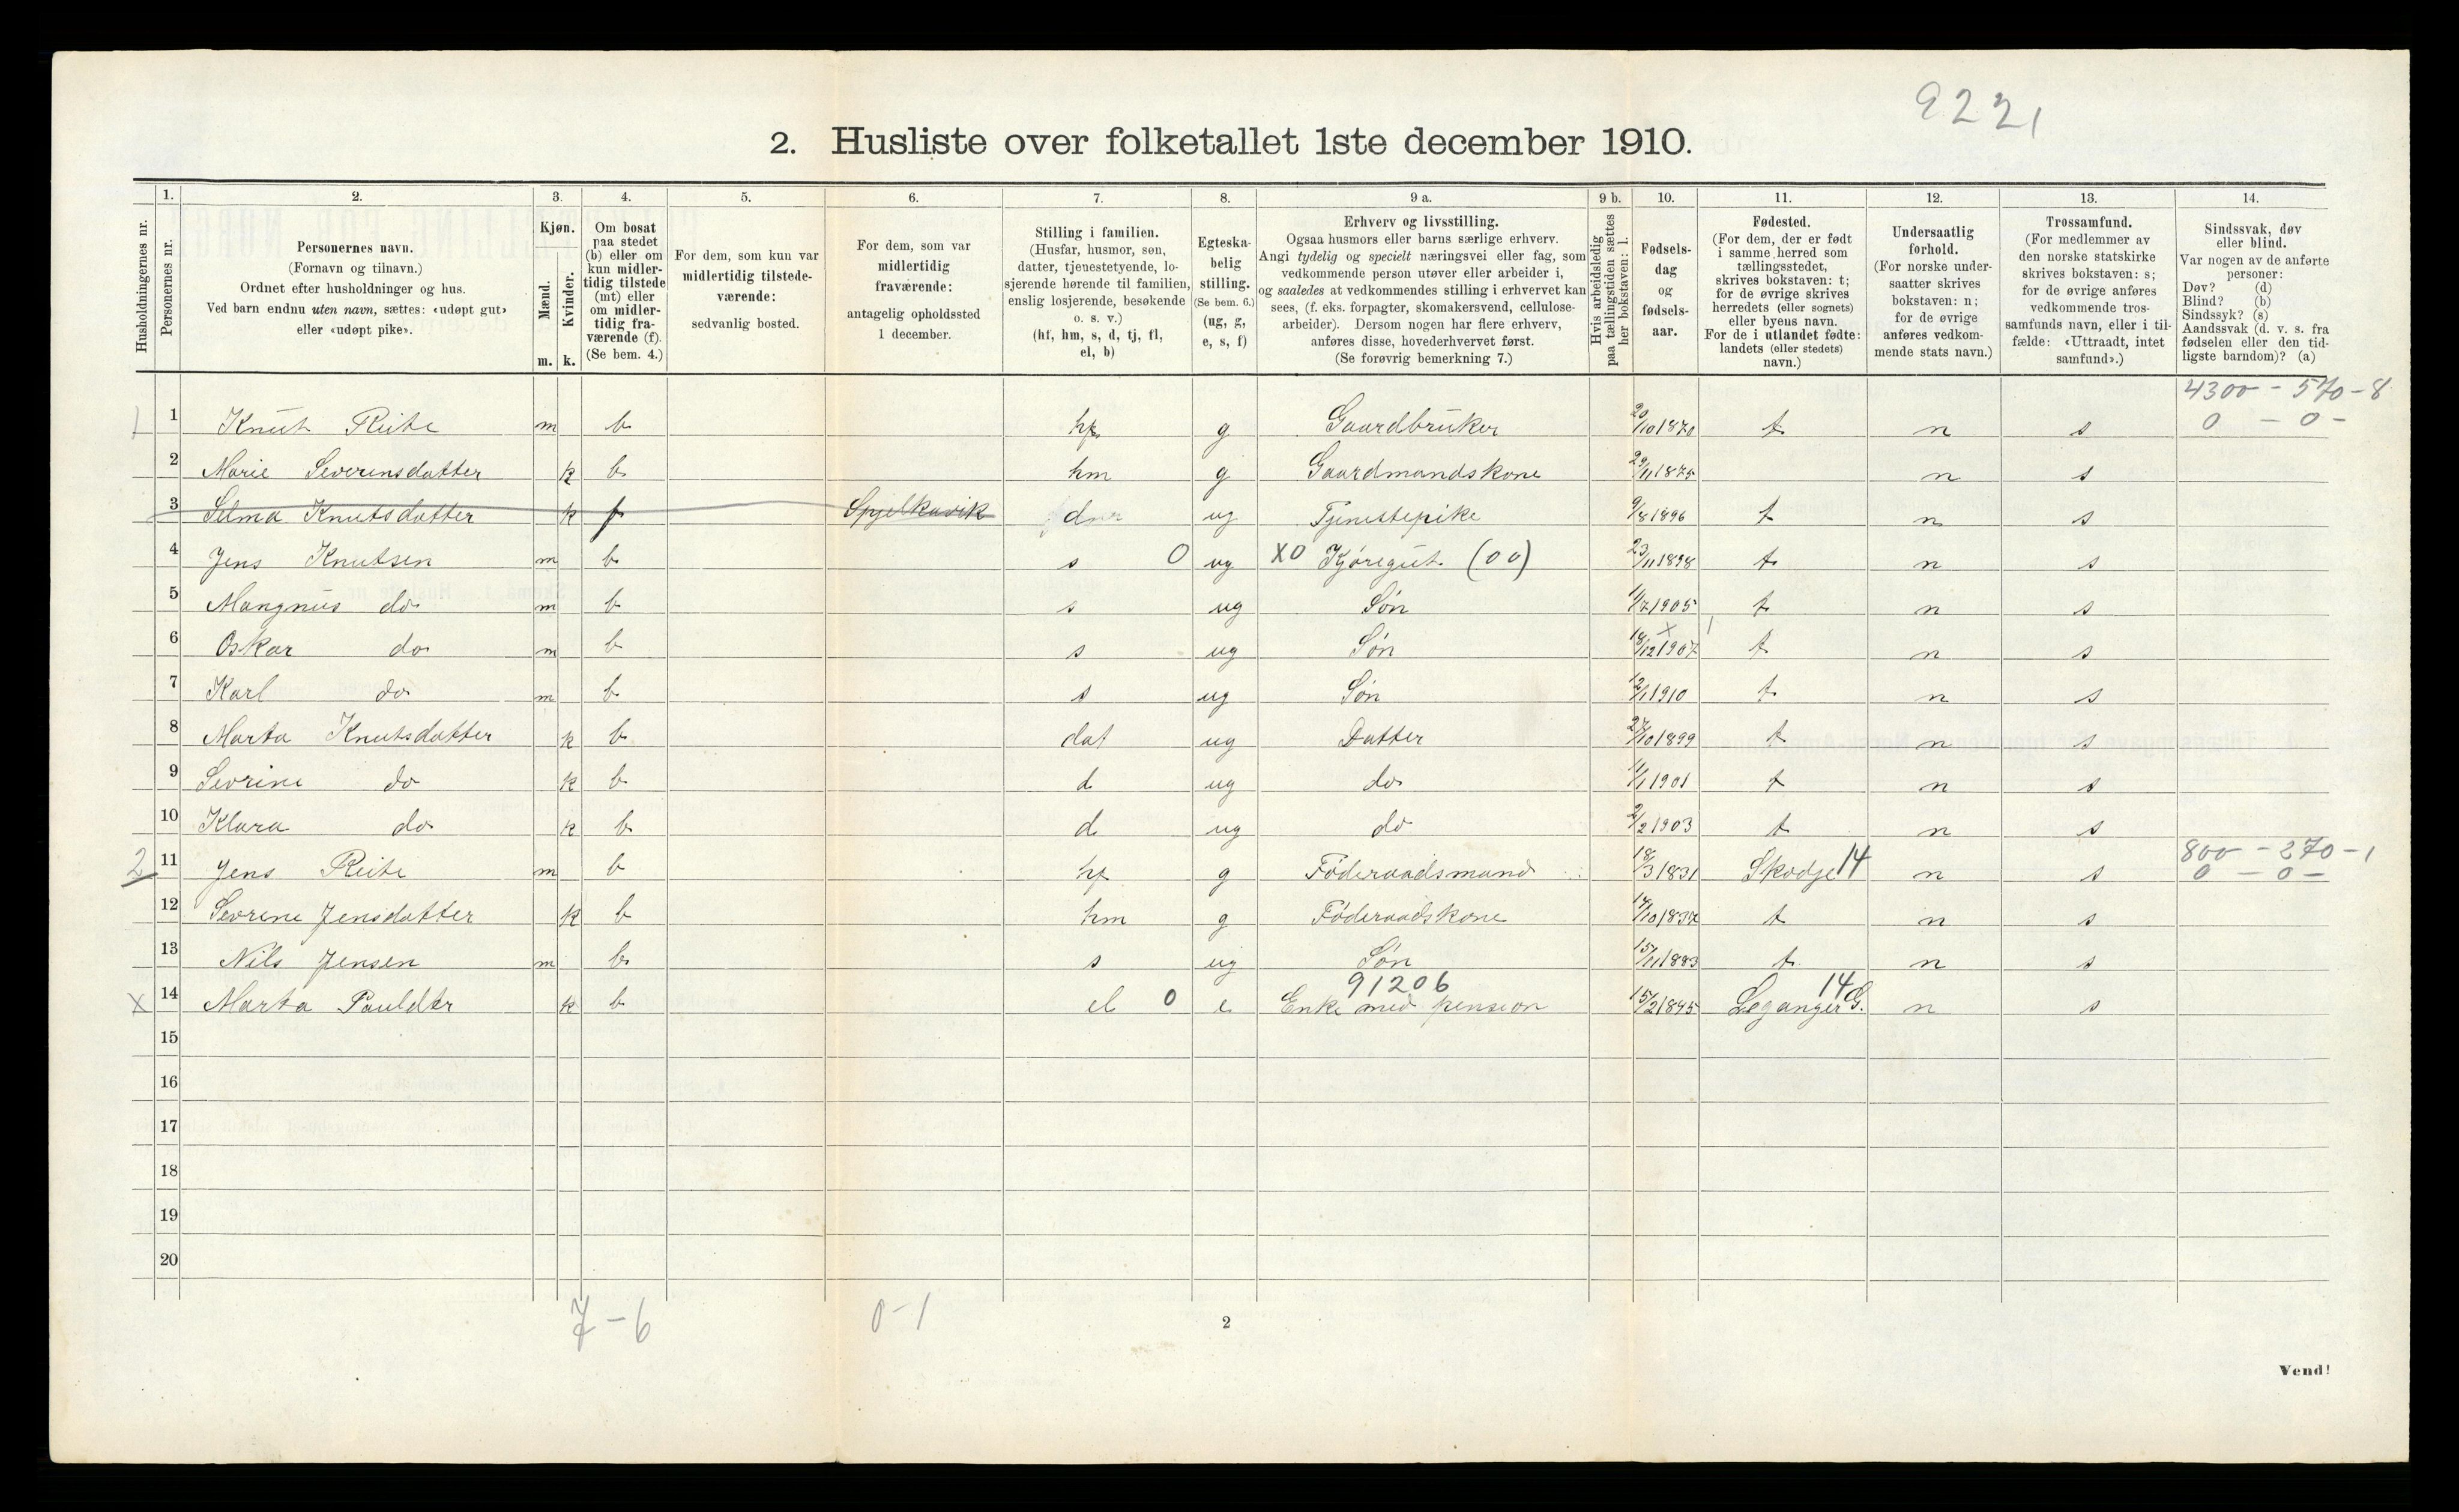 9221
2. Husliste over folketallet 1ste december 1910.
Husholdningernes nr.
1. Personernes nr.
2. Personernes navn. (Fornavn og tilnavn.) Ordnet efter husholdninger og hus. Ved barn endnu uten navn, sættes: «udøpt gut» eller «udøpt pike».
3. Kjøn. Mænd. m. Kvinder. k.
4. Om bosat paa stedet (b) eller om kun midlertidig tilstede (mt) eller om midlertidig fraværende (f). (Se bem. 4.)
5. For dem, som kun var midlertidig tilstedeværende: sedvanlig bosted.
6. For dem, som var midlertidig fraværende: antagelig opholdssted 1 december.
7. Stilling i familien. (Husfar, husmor, søn, datter, tjenestetyende, losjerende hørende til familien, enslig losjerende, besøkende o. s. v.) (hf, hm, s, d, tj, fl, el, b)
8. Egteskabelig stilling. (Se bem. 6.) (ug, g, e, s, f)
9 a. Erhverv og livsstilling. Ogsaa husmors eller barns særlige erhverv. Angi tydelig og specielt næringsvei eller fag, som vedkommende person utøver eller arbeider i, og saaledes at vedkommendes stilling i erhvervet kan sees, (f. eks. forpagter, skomakersvend, cellulosearbeider). Dersom nogen har flere erhverv, anføres disse, hovederhvervet først. (Se forøvrig bemerkning 7.)
9 b. Hvis arbeidsledig paa tællingstiden sættes her bokstaven: l.
10. Fødselsdag og fødselsaar.
11. Fødested. (For dem, der er født i samme herred som tællingsstedet, skrives bokstaven: t; for de øvrige skrives herredets (eller sognets) eller byens navn. For de i utlandet fødte: landets (eller stedets) navn.)
12. Undersaatlig forhold. (For norske undersaatter skrives bokstaven: n; for de øvrige anføres vedkommende stats navn.)
13. Trossamfund. (For medlemmer av den norske statskirke skrives bokstaven: s; for de øvrige anføres vedkommende trossamfunds navn, eller i tilfælde: «Uttraadt, intet samfund».)
14. Sindssvak, døv eller blind. Var nogen av de anførte personer: Døv? (d) Blind? (b) Sindssyk? (s) Aandssvak (d. v. s. fra fødselen eller den tidligste barndom)? (a)
4300 - 570 - 8
1 1 Knut Reite m b hf g Gaardbruker 20/10 1870 t n s 0 - 0 -
2 Marie Severinsdatter k b hm g Gaardmandskone 29/11 1875 n s
3 Selma Knutsdatter k f Spjelkavik d ug Tjenestepike 9/8 1896 t n s
4 Jens Knutsen m b s 0 ug X0 Kjøregut (00) 23/11 1898 t n s
5 Mangnus do m b s ug Søn 11/7 1905 t n s
6 Oskar do m b s ug Søn 18/12 1907 t n s
7 Karl do m b s ug Søn 12/1 1910 t n s
8 Marta Knutsdatter k b dat ug Datter 27/10 1899 t n s
9 Sevrine do k b d ug do 11/1 1901 t n s
10 Klara do k b d ug do 2/2 1903 t n s
800 - 270 - 1
2 11 Jens Reite m b hf g Føderaadsmand 18/3 1831 Skodje 14 n s 0 - 0 -
12 Sevrine Jensdatter k b hm g Føderaadskone 14/10 1837 t n s
13 Nils Jensen m b s ug Søn 15/11 1883 t n s
91206 14
X 14 Marta Pauldtr k b el 0 e Enke med pension 15/2 1845 Leganger G. n s
15
16
17
18
19
20
7 - 6 0 - 1
2
Vend!